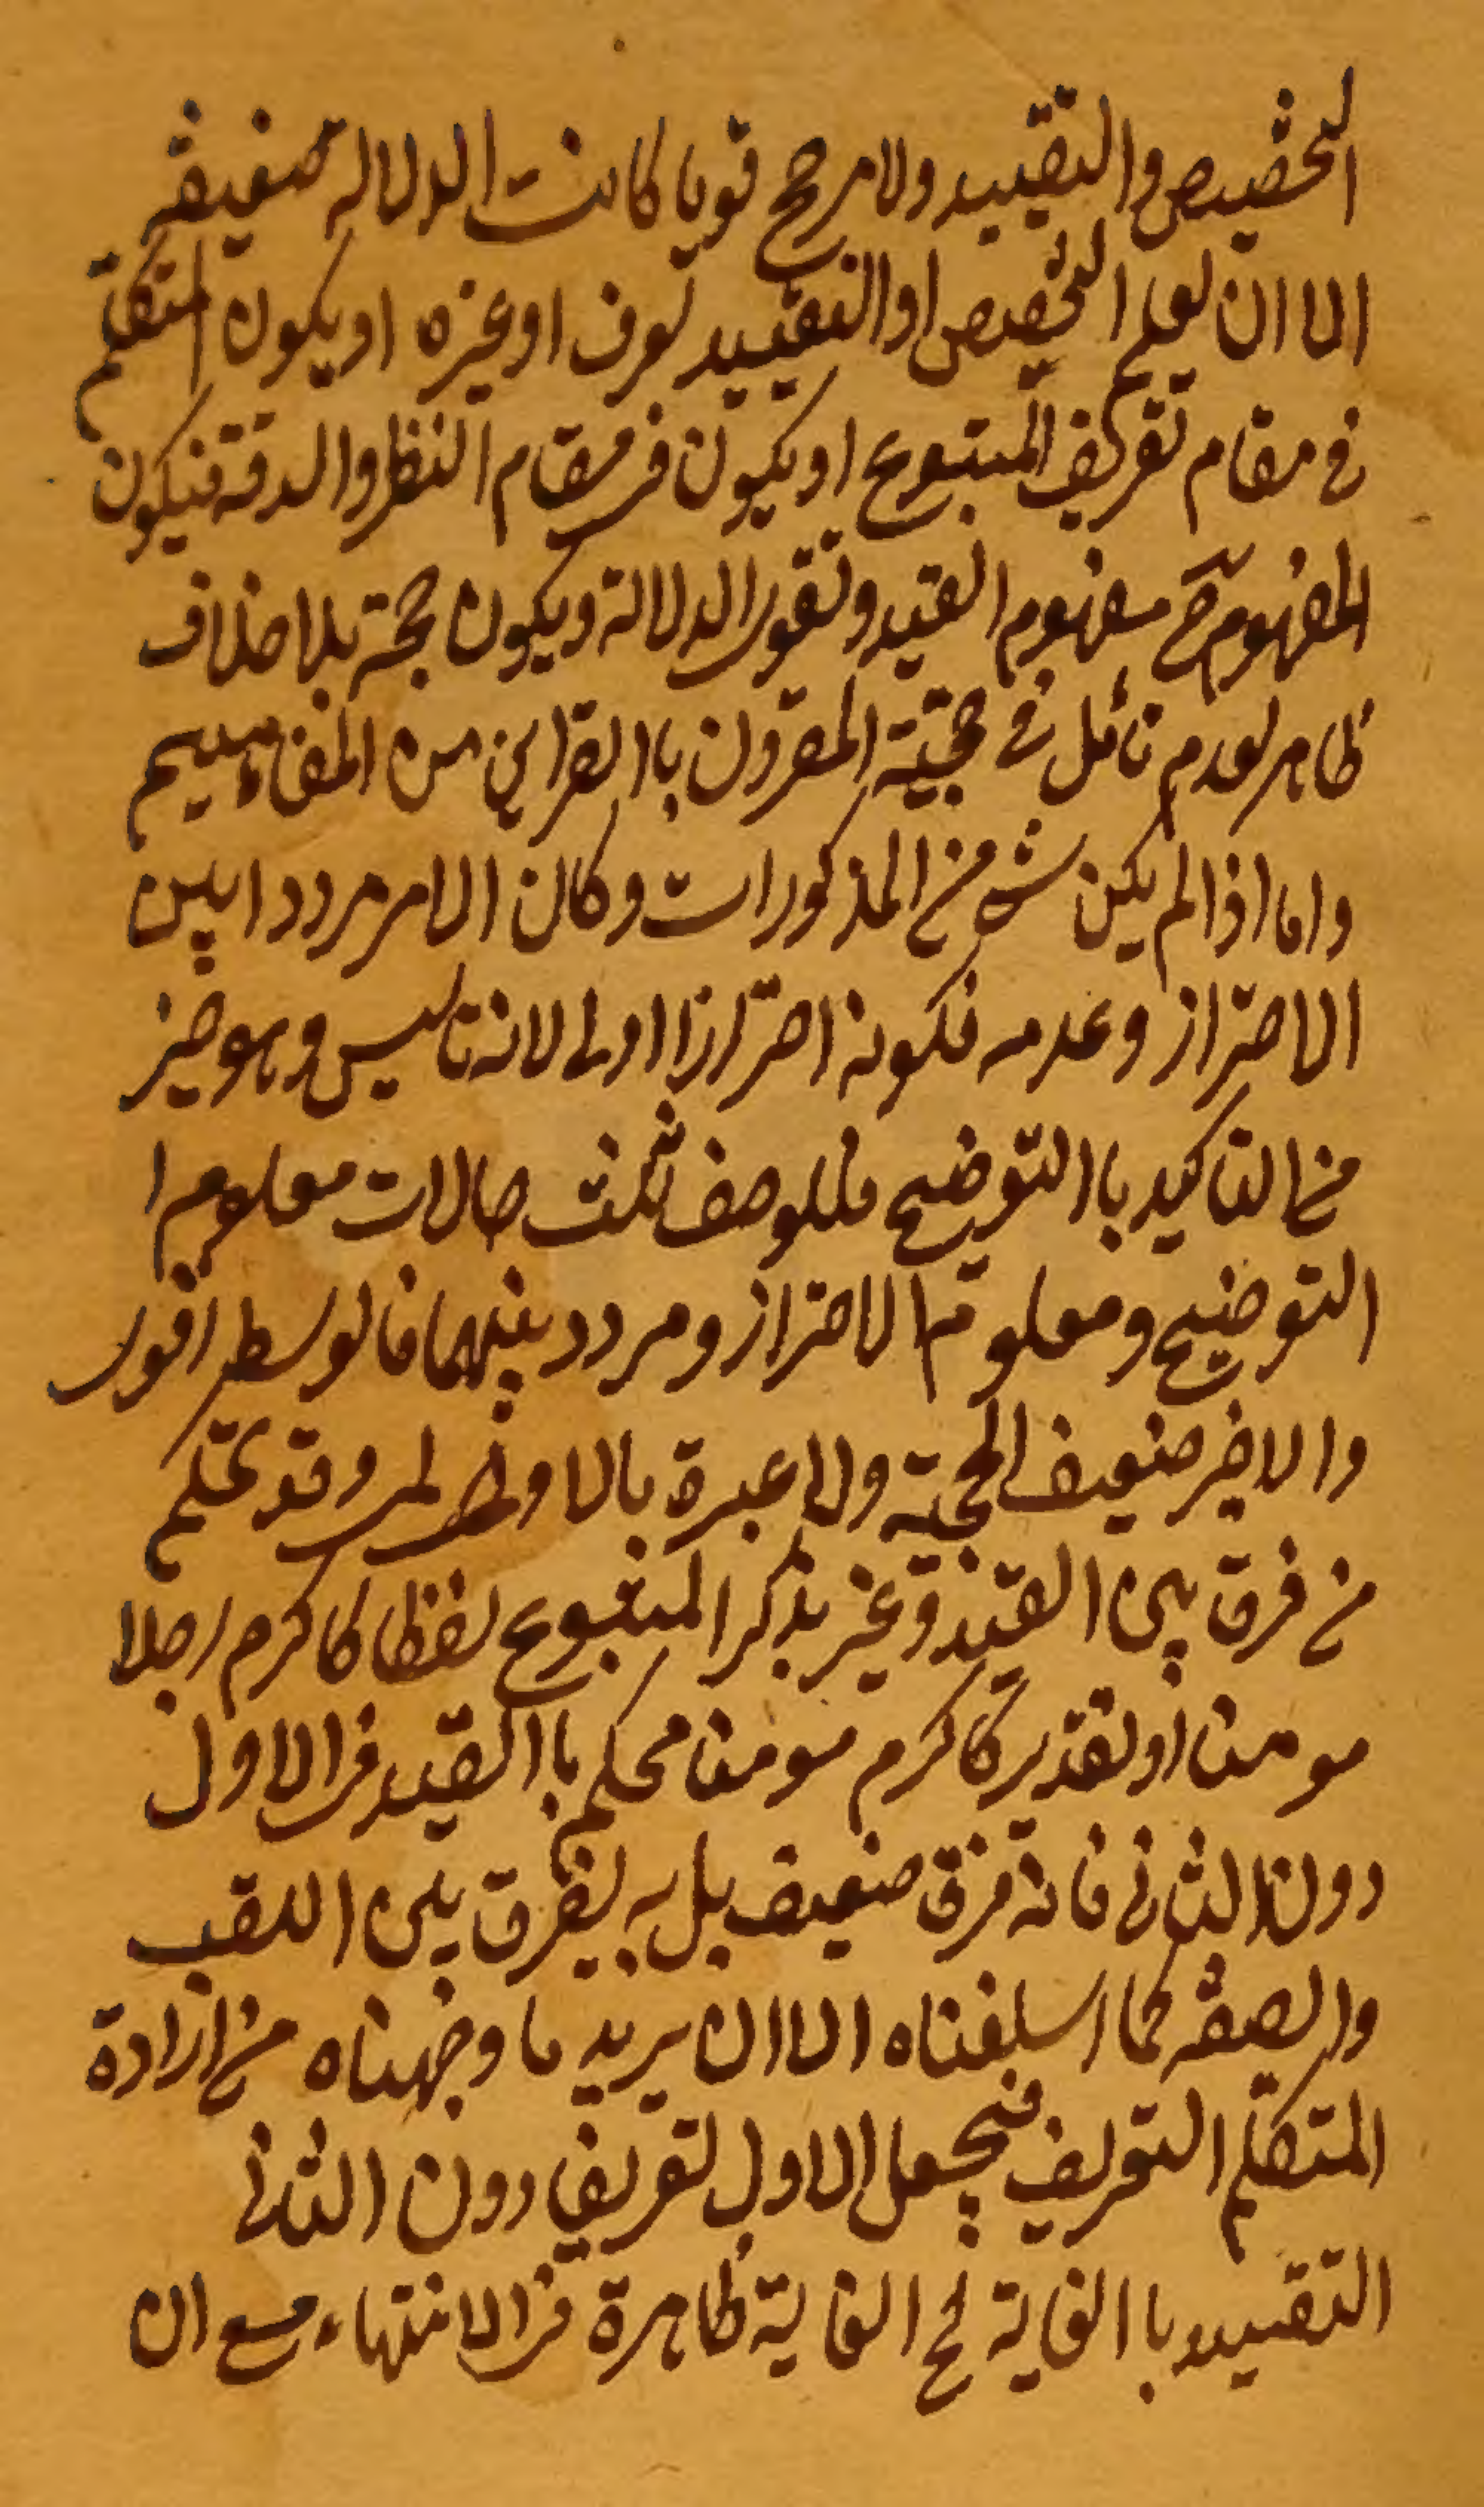 التخصيص والتقييد ولا مرجح قويا كانت الدلالة ضعيفة
الا ان يعلم التخصيص او التقييد لعرف او غيره او يكون المتكلم
في مقام تعريف المتبوع او يكون في مقام النظر والدقة فيكون
المفهوم ح مفهوم القيد وتقوى الدلالة ويكون حجة بلا خلاف
ظاهر لعدم تأمل في حجية المقرون باالقراين من المفاهيم
واما اذا لم يكن شئ من المذكورات وكان الامر مرددا بين
الاحتراز وعدمه فكونه احترازا اولى لانه تاسيس وهو خير
من التاكيد باالتوضيح فللوصف ثلث حالات معلوم ا
التوضيح ومعلوم الاحتراز ومردد بينهما فالوسط اقوى
والاخير ضعيف الحجية ولا عبرة بالاول وقد تحكم
من فرق بين القيد وغير بذكر المتبوع لفظا كاكرم رجلا
مومنا او تقديرا كاكرم مومنا محكم باالقيد في الاول
دون الثاني فانه فرق ضعيف بل به يفرق بين اللقب
والصفة كما اسلفناه الا ان يريد ما وجهناه من ارادة
المتكلم التعريف فيجعل الاول تعريفا دون الثاني
التقييد باالغاية لح الغاية ظاهرة في الانتهاء مع ان